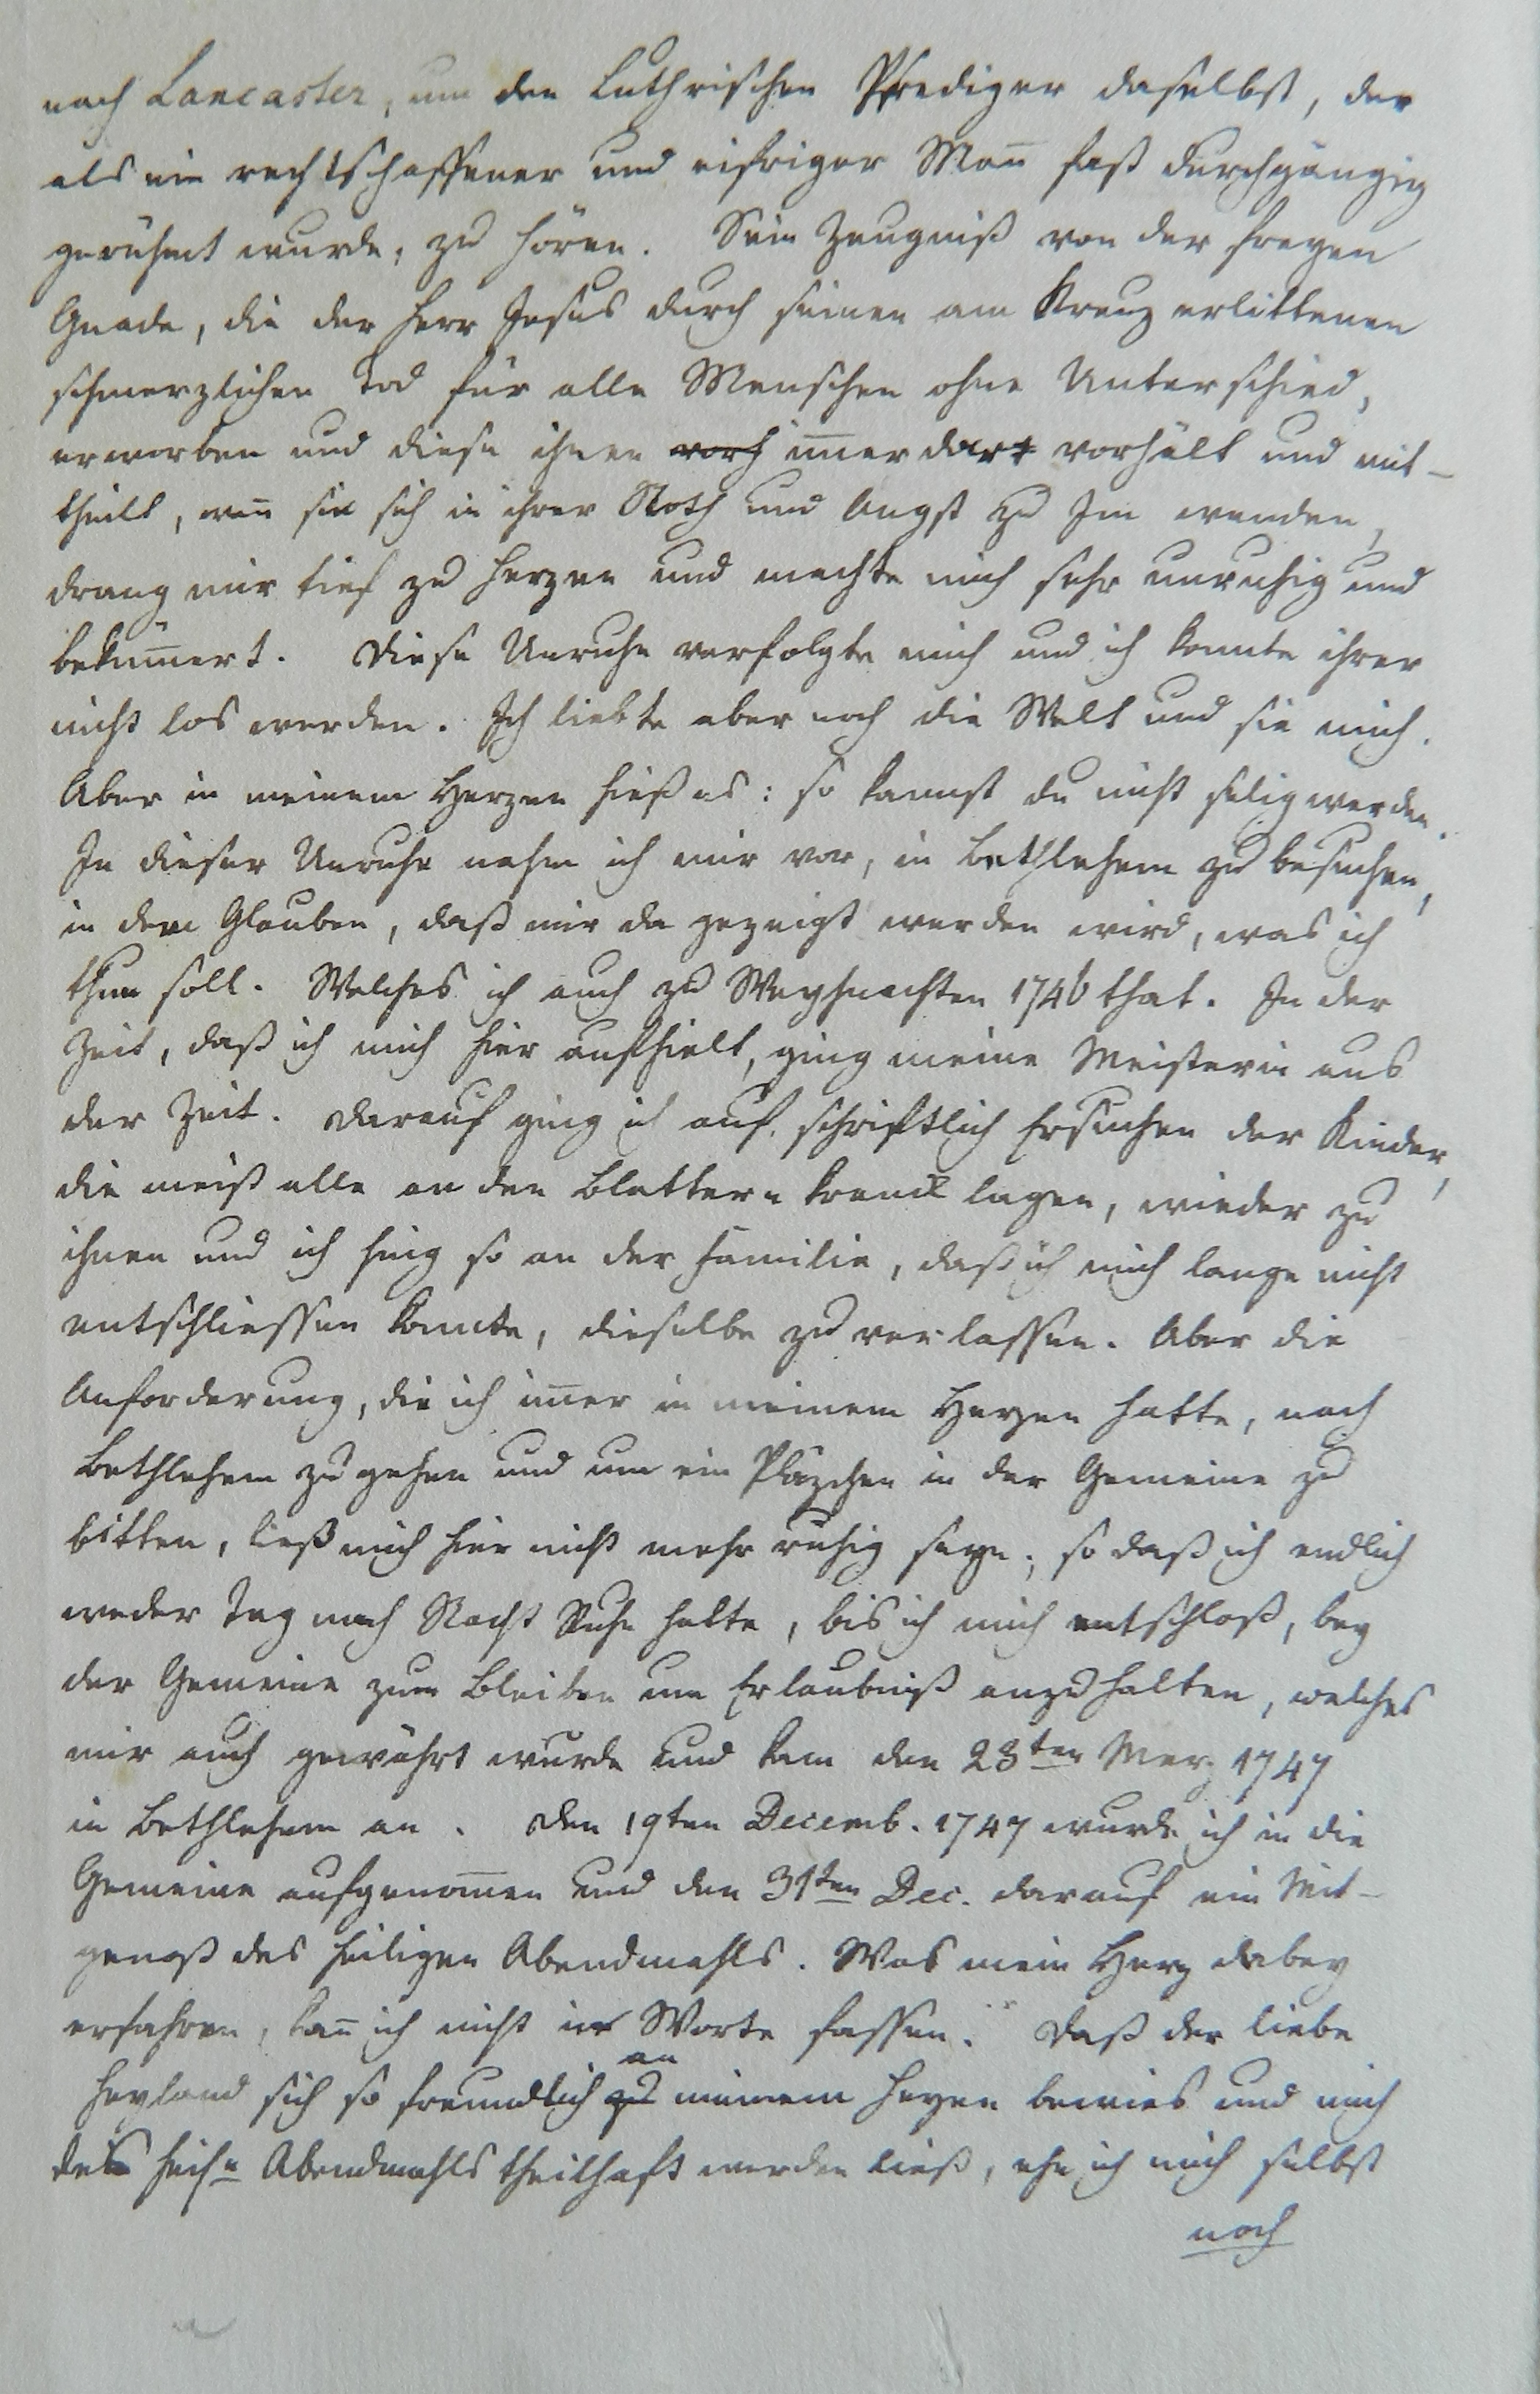 nach Lancaster, um den Luthrischen Prediger daselbst, der
als ein rechtschaffener und eifriger Man̅ fast durchgängig
gerühmt wurde, zu hören. Sein Zeugniß von der freyen
Gnade, die der Herr Jesus durch seinen am Kreuz erlittenen
schmerzlichen Tod für alle Menschen ohne Unterschied,
erworben und diese ihnen vorh im̅erdar vorhält und mit-
theilt, wen̅ sie sich in ihrer Noth und Angst zu Im wenden,
drang mir tief zu Herzen und machte mich sehr unruhig und
beküm̅ert. Diese Unruhe verfolgte mich und ich konnte ihrer
nicht los werden. Ich liebte aber noch die Welt und sie mich.
Aber in meinem Herzen hieß es: so kannst du nicht selig werden.
In dieser Unruhe nahm ich mir vor, in Bethlehem zu besuchen,
in dem Glauben, daß mir da gezeigt werden wird, was ich
thun soll. Welches ich auch zu Weyhnachten 1746 that. In der
Zeit, daß ich mich hier aufhielt, ging meine Meisterin aus
der Zeit. Darauf ging ich auf schriftlich Ersuchen der Kinder,
die meist alle an den Blattern kranck lagen, wieder zu
ihnen und ich hing so an der Familie, daß ich mich lange nicht
entschliessen konnte, dieselbe zu verlassen. Aber die
Anforderung, die ich im̅er in meinem Herzen hatte, nach
Bethlehem zu gehen und um ein Pläzchen in der Gemeine zu
bitten, ließ mich hier nicht mehr ruhig seyn, so daß ich endlich
weder Tag noch Nacht Ruhe hatte, bis ich mich entschloß, bey
der Gemeine zum Bleiben um Erlaubniß anzuhalten, welches
mir auch gewährt wurde und kam den 28ten Merz 1747
in Bethlehem an. Den 19ten Decemb. 1747 wurde ich in die
Gemeine aufgenom̅en und den 31ten Dec. darauf ein Mit-
genoß des heiligen Abendmahls. Was mein Herz dabey
erfahren, kan̅ ich nicht in Worte fassen. Daß der liebe
Heyland sich so freundlich zu an meinem Herzen bewies und mich
des heil. Abendmahls theilhaft werden ließ, ehe ich mich selbst
noch